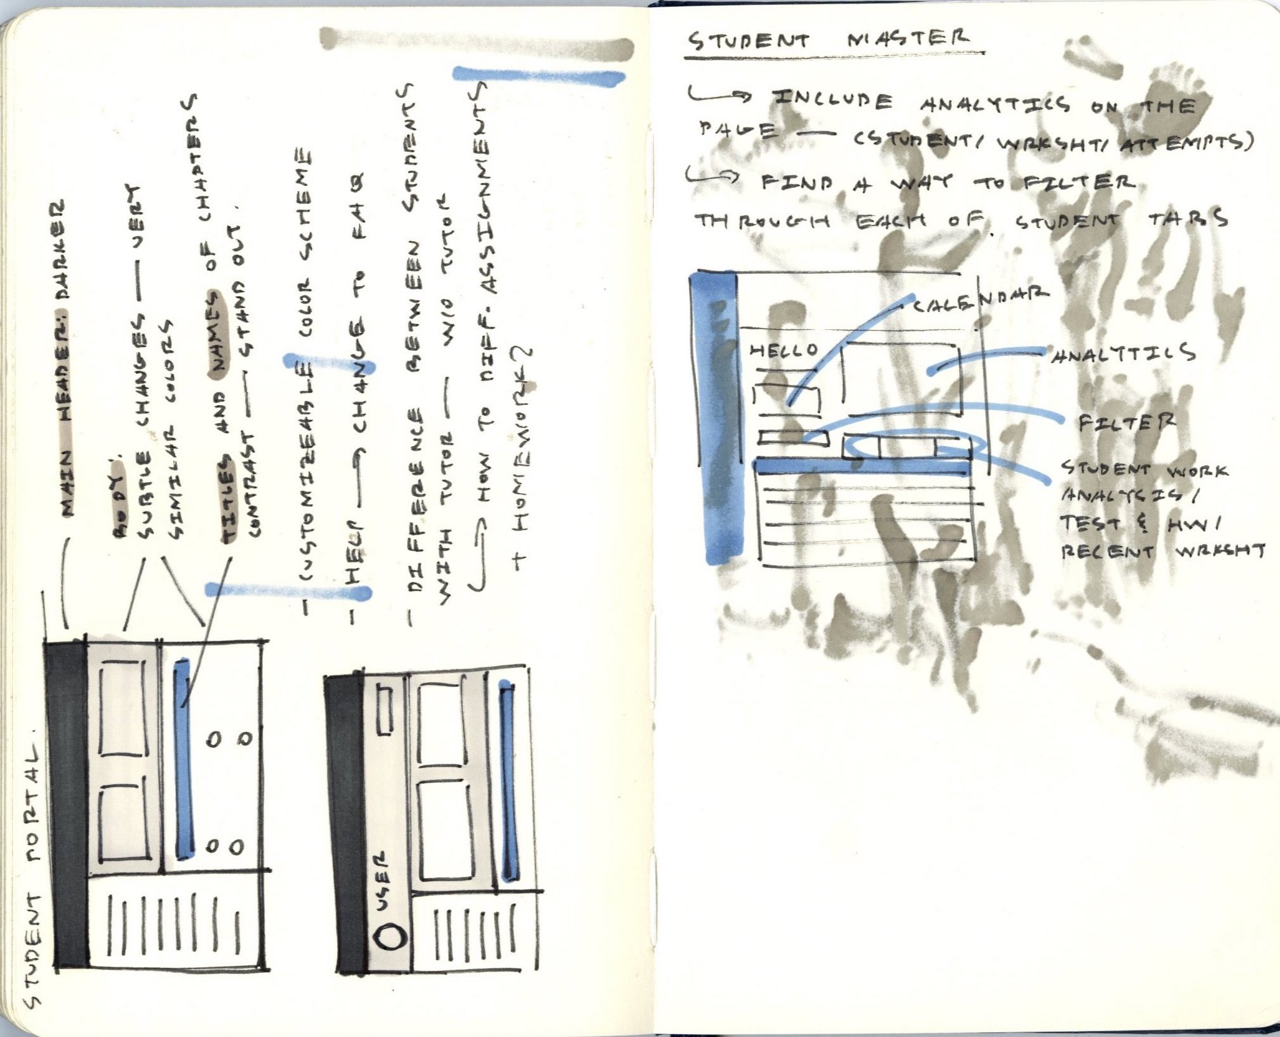 STUDENT PORTAL.
MAIN HEADER: DARKER
BODY:
SUBTLE CHANGES — VERY
SIMILAR COLORS
TITLES AND NAMES OF CHAPTERS
CONTRAST — STAND OUT.
— CUSTOMIZEABLE COLOR SCHEME
— HELP → CHANGE TO FAQ
— DIFFERENCE BETWEEN STUDENTS
WITH TUTOR — W/O TUTOR
↳ HOW TO DIFF. ASSIGNMENTS
+ HOMEWORK?
USER
STUDENT MASTER
↳ INCLUDE ANALYTICS ON THE
PAGE — (STUDENT/ WRKSHT/ ATTEMPTS)
↳ FIND A WAY TO FILTER
THROUGH EACH OF STUDENT TABS
CALENDAR
HELLO
ANALYTICS
FILTER
STUDENT WORK
ANALYSIS/
TEST & HW/
RECENT WRKSHT